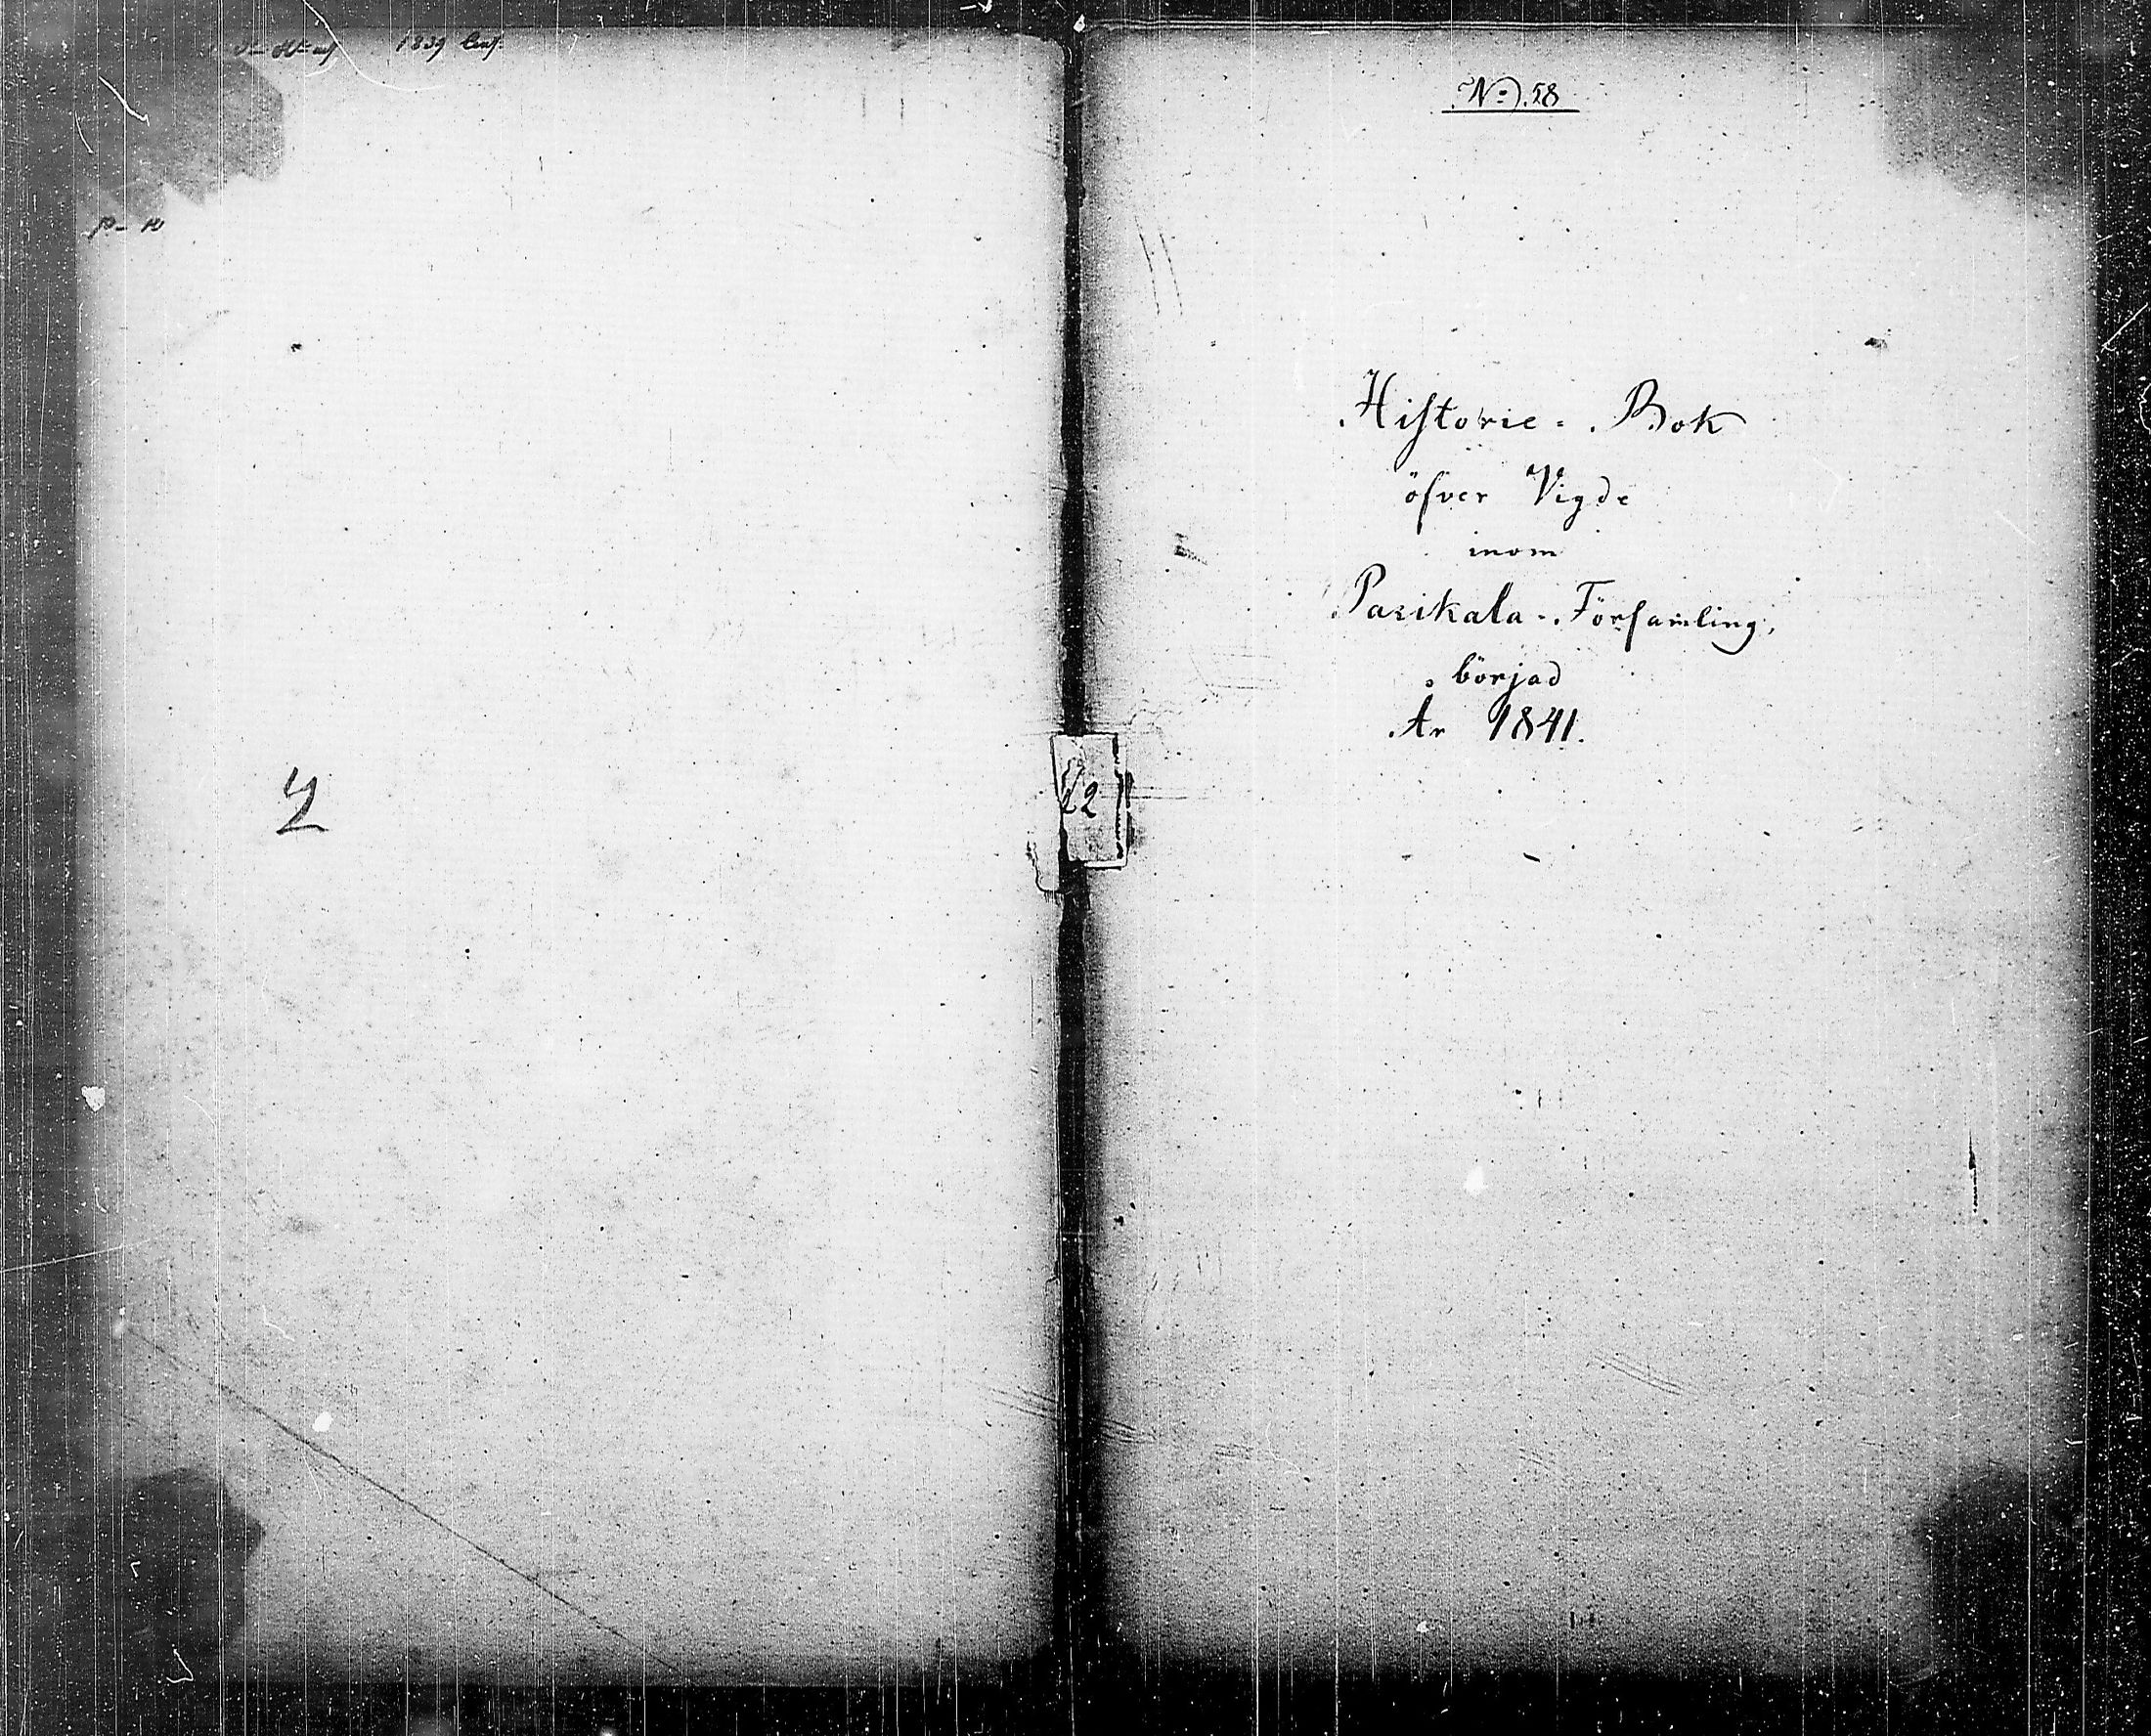 1839
No. 58
Historie-Bok
öfver Vigde
inom
Parikala-Församling,
börjad
År 1841.
2